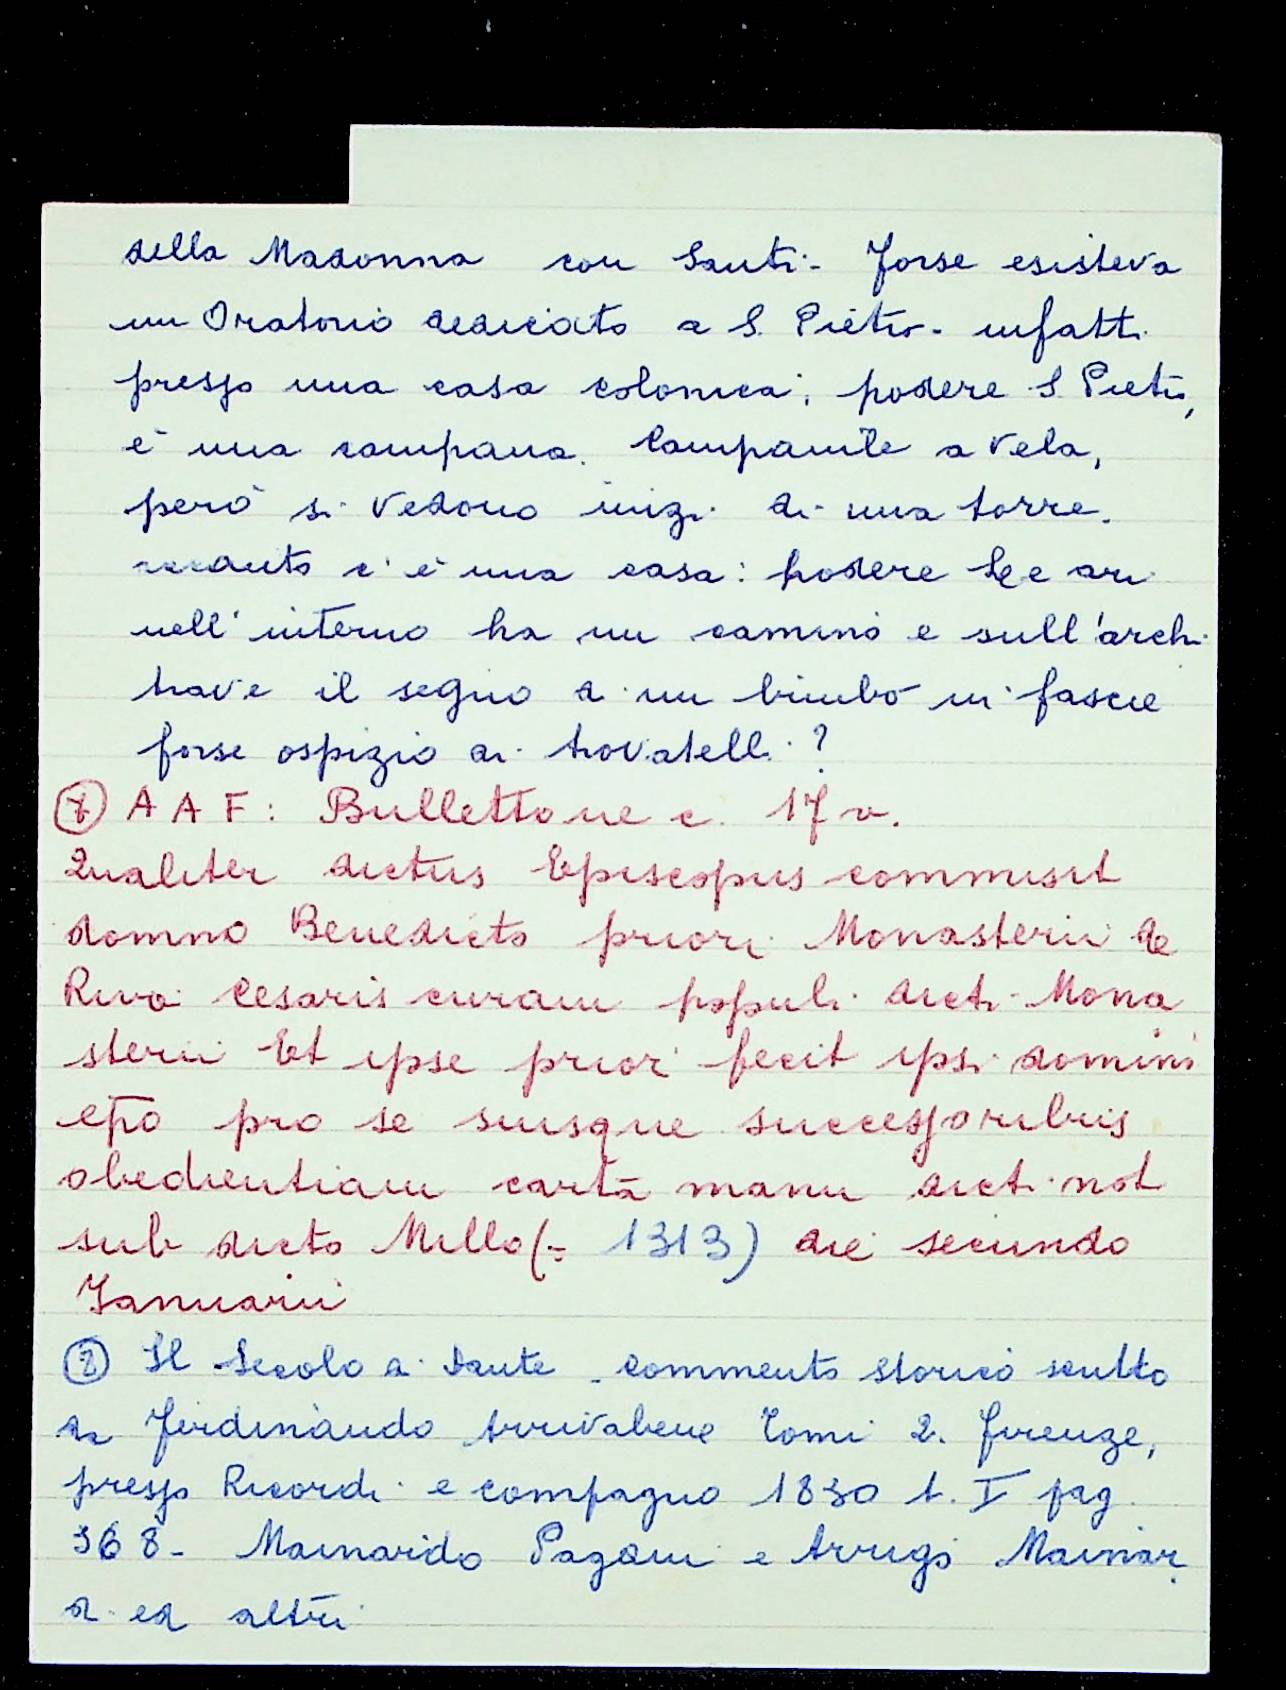 della Madonna con Santi - Forse esisteva
un Oratorio dedicato a S. Pietro - infatti
presso una casa colonica, podere S Pietro,
è una campana. Campanile a vela,
però si vedono inizi di una torre.
accanto c'è una casa: podere
nell'interno ha un camino e sull'archi
trave il segno di un bimbo in fascie
forse ospizio di trovatelli?
⑦ A A F: Bullettone c. 17 v.
Qualiter dictus Episcopus commisit
domno Benedicto priori Monasterii de
Rivo Cesaris curam populi dicti Mona
sterii Et ipse prior fecit ipsi domini
epō pro se suisque successoribus
obedientiam cartā manu dicti not
sub dicto Millo (= 1313) die secundo
Ianuarii
⑧ Il Secolo di Dante - commento storico scritto
da Ferdinando Arrivabene Tomi 2. Firenze,
presso Ricordi e compagno 1830 t. I pag.
368 - Mainardo Pagani e Arrigo Mainar
di ed altri